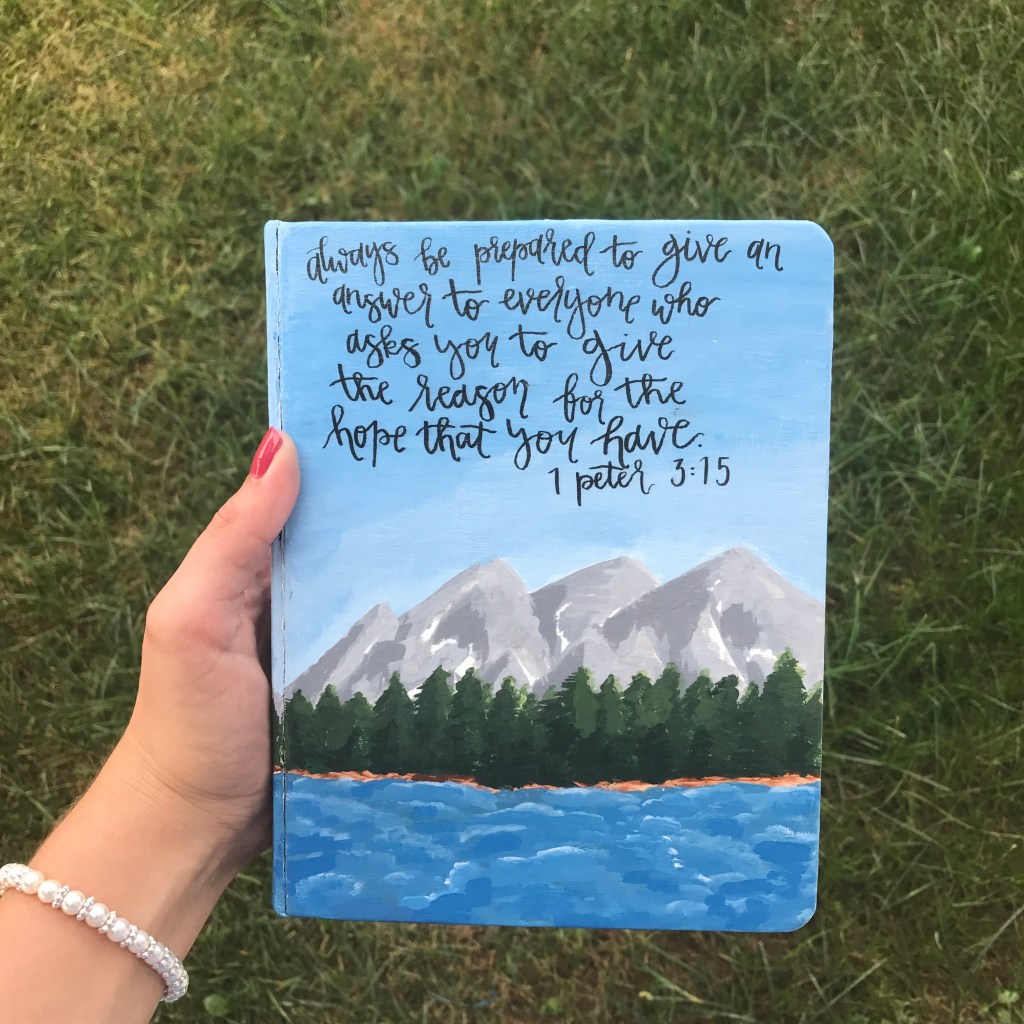 always be prepared to give an
answer to everyone who
asks you to give
the reason for the
hope that you have.
1 peter 3:15